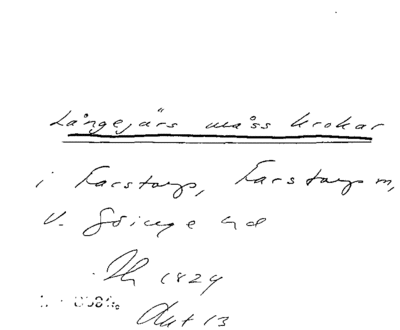 Långejärs måss krokar
i Farstorp, Farstorp m,
V. Göinge hd
1824
13